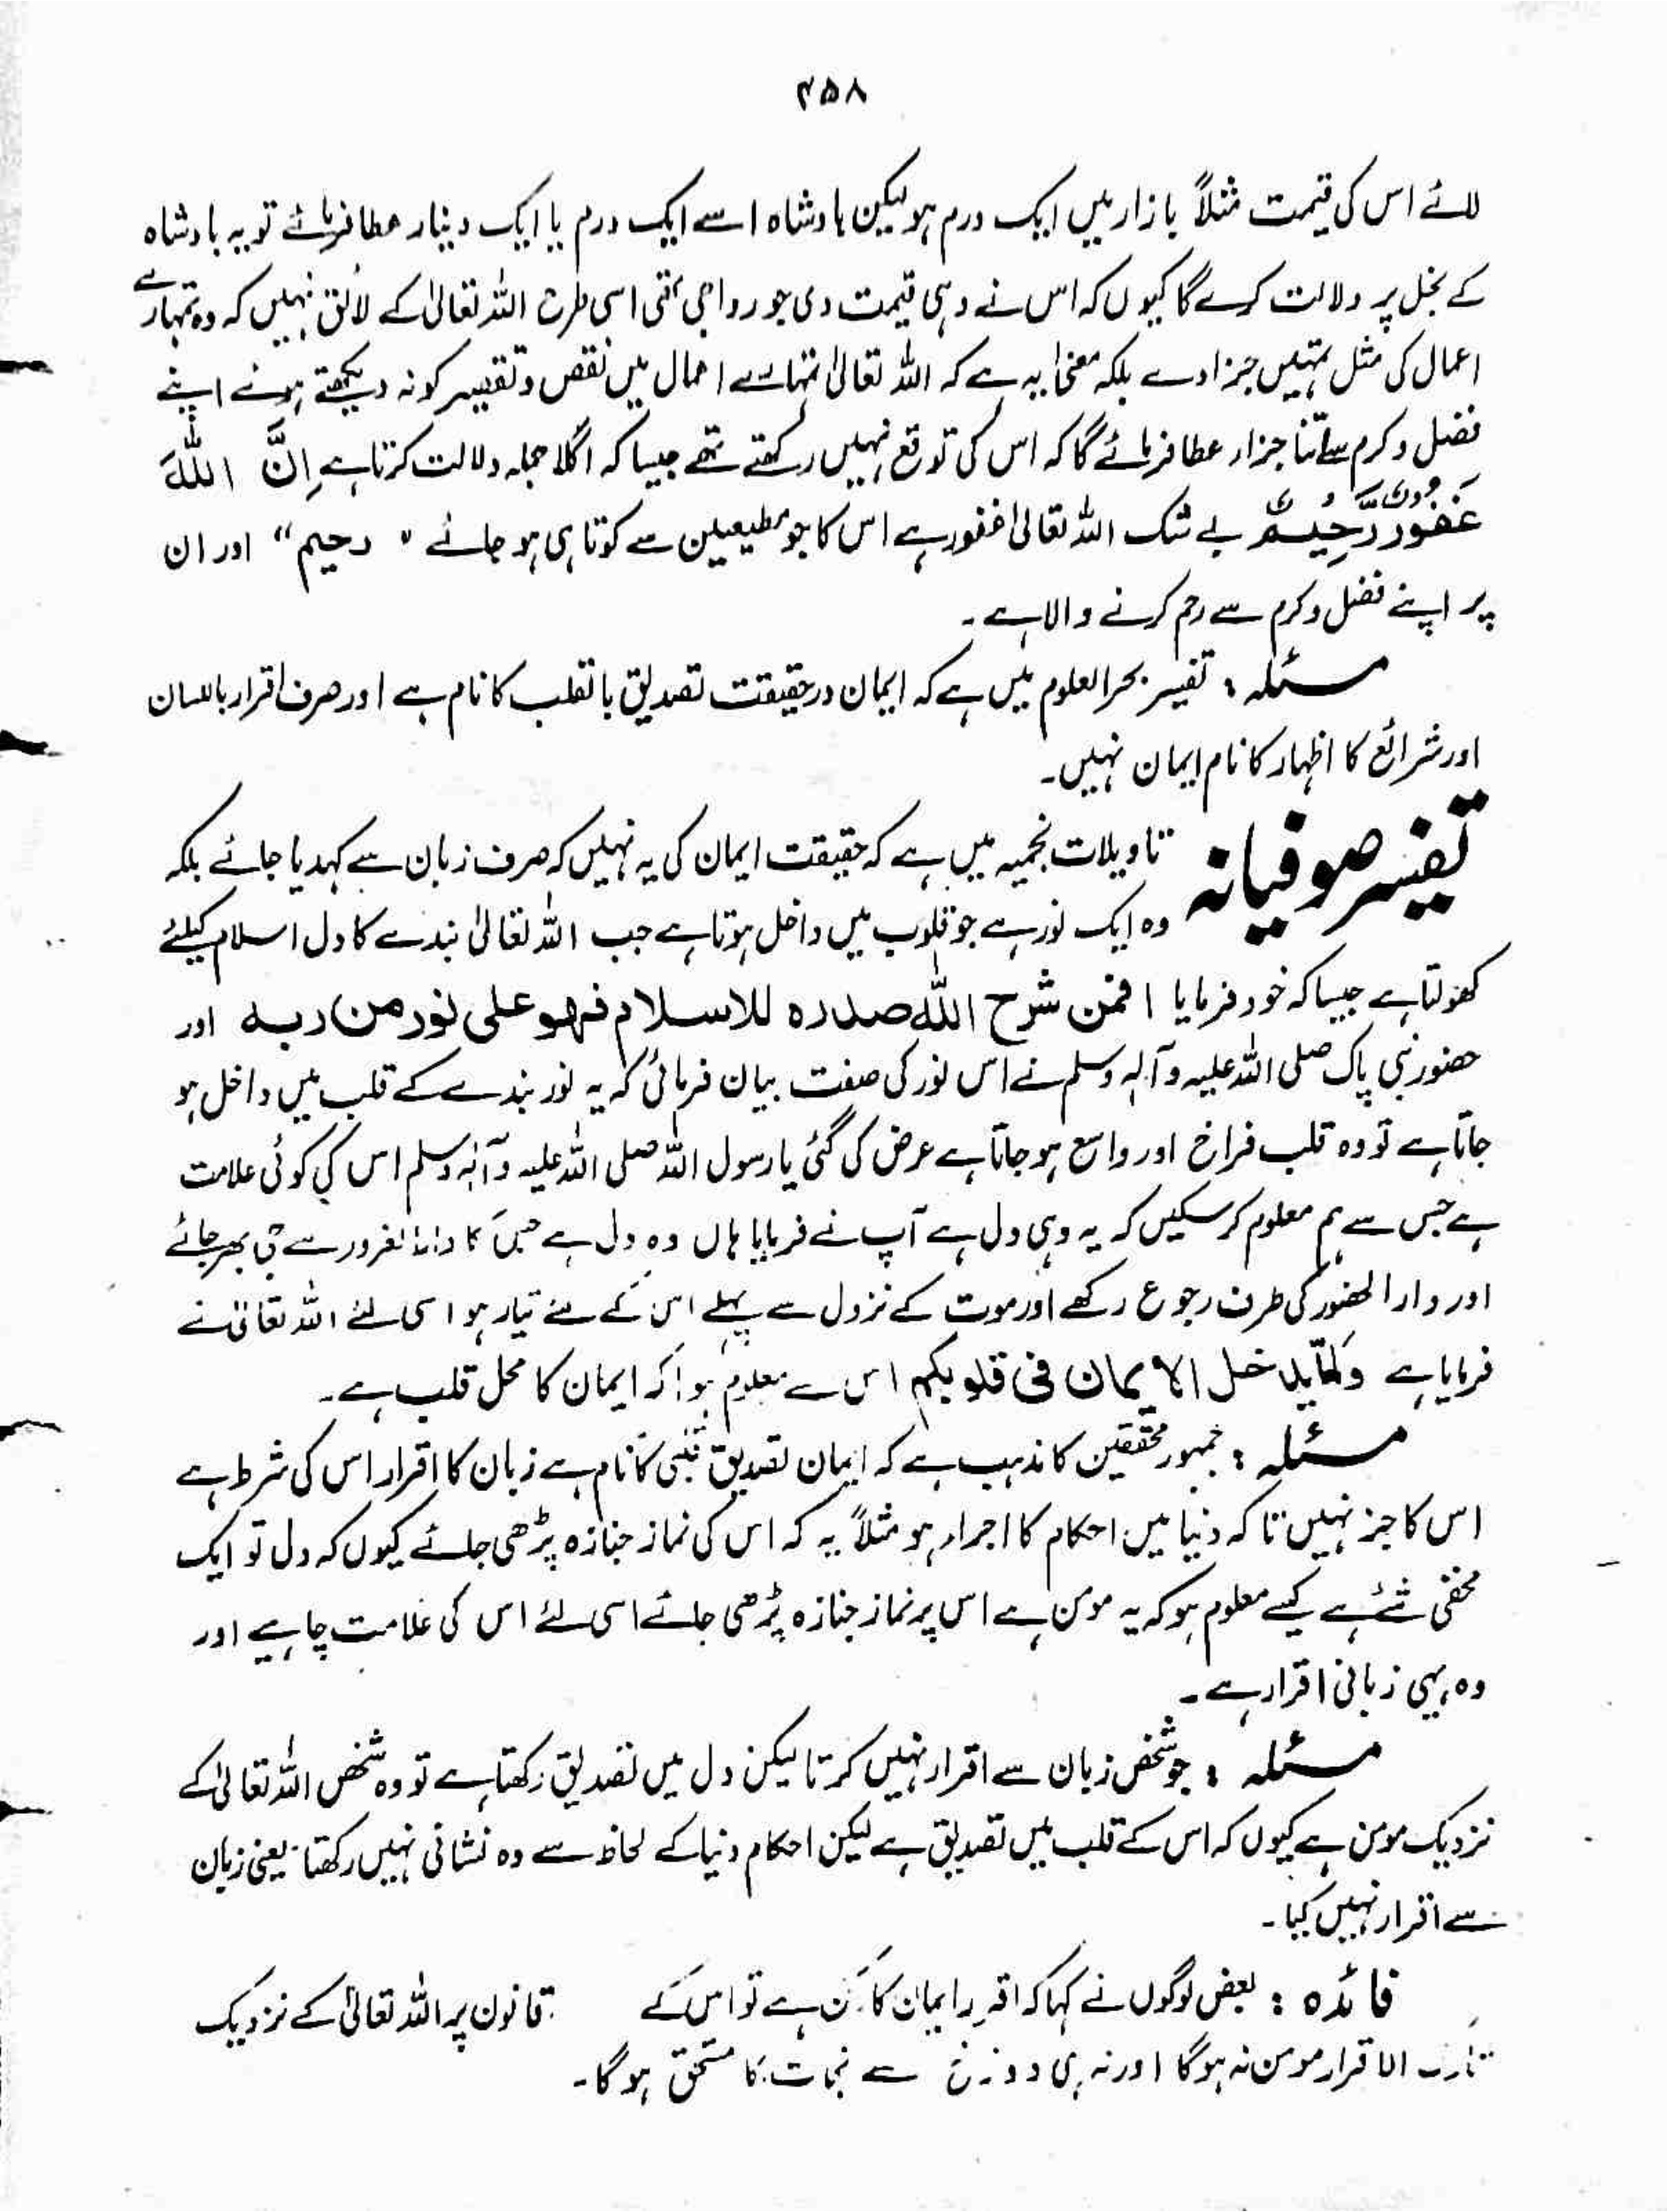 ۴۵۸
لائے اس کی قیمت مثلاً بازار میں ایک درم ہو لیکن بادشاہ اسے ایک درم یا ایک دینار عطا فرمائے تو یہ بادشاہ
کے بخل پر دلالت کرے گا کیوں کہ اس نے وہی قیمت دی جو رواجی تھی اسی طرح اللہ تعالیٰ کے لائق نہیں کہ وہ تمہارے
اعمال کی مثل تمہیں جزا دے بلکہ معنیٰ یہ ہے کہ اللہ تعالیٰ تمہارے اعمال میں نقص و تقصیر کو نہ دیکھتے ہوئے اپنے
فضل و کرم سے اتنا جزار عطا فرمائے گا کہ اس کی توقع نہیں رکھتے تھے جیسا کہ اگلا جملہ دلالت کرتا ہے اِنَّ اللّٰہَ
غَفُوْرٌ رَّحِیْمٌ بے شک اللہ تعالیٰ غفور ہے اس کا جو مطیعین سے کوتاہی ہو جائے " رحیم " اور ان
پر اپنے فضل و کرم سے رحم کرنے والا ہے ۔
مسئلہ : تفسیر بحر العلوم میں ہے کہ ایمان درحقیقت تصدیق بالقلب کا نام ہے اور صرف اقرار باللسان
اور شرائع کا اظہار کا نام ایمان نہیں ۔
تفسیر صوفیانہ تاویلات نجمیہ میں ہے کہ حقیقت ایمان کی یہ نہیں کہ صرف زبان سے کہدیا جائے بلکہ
وہ ایک نور ہے جو قلوب میں داخل ہوتا ہے جب اللہ تعالیٰ بندے کا دل اسلام کیلئے
کھولتا ہے جیسا کہ خود فرمایا افمن شرح اللہ صدرہ للاسلام فہو علی نور من ربہ اور
حضور نبی پاک صلی اللہ علیہ وآلہ وسلم نے اس نور کی صفت بیان فرمائی کہ یہ نور بندے کے قلب میں داخل ہو
جاتا ہے تو وہ قلب فراخ اور واسع ہو جاتا ہے عرض کی گئی یا رسول اللہ صلی اللہ علیہ وآلہ وسلم اس کی کوئی علامت
ہے جس سے ہم معلوم کر سکیں کہ یہ وہی دل ہے آپ نے فرمایا ہاں وہ دل ہے جس کا دارالغرور سے جی بھر جائے
اور دار الحضور کی طرف رجوع رکھے اور موت کے نزول سے پہلے اس کے لئے تیار ہو اسی لئے اللہ تعالیٰ نے
فرمایا ہے ولمّا یدخل الایمان فی قلوبکم اس سے معلوم ہوا کہ ایمان کا محل قلب ہے ۔
مسئلہ : جمہور محققین کا مذہب ہے کہ ایمان تصدیق قلبی کا نام ہے زبان کا اقرار اس کی شرط ہے
اس کا جز نہیں تا کہ دنیا میں احکام کا اجرار ہو مثلاً یہ کہ اس کی نماز جنازہ پڑھی جائے کیوں کہ دل تو ایک
مخفی شئے ہے کیسے معلوم ہو کہ یہ مومن ہے اس پر نماز جنازہ پڑھی جائے اسی لئے اس کی علامت چاہیے اور
وہ یہی زبانی اقرار ہے ۔
مسئلہ : جو شخص زبان سے اقرار نہیں کرتا لیکن دل میں تصدیق رکھتا ہے تو وہ شخص اللہ تعالیٰ کے
نزدیک مومن ہے کیوں کہ اس کے قلب میں تصدیق ہے لیکن احکام دنیا کے لحاظ سے وہ نشانی نہیں رکھتا یعنی زبان
سے اقرار نہیں کیا ۔
فائدہ : بعض لوگوں نے کہا کہ اقرار ایمان کا رکن ہے تو اس کے قانون پر اللہ تعالیٰ کے نزدیک
تارک الاقرار مومن نہ ہوگا اور نہ ہی دوزخ سے نجات کا مستحق ہوگا ۔